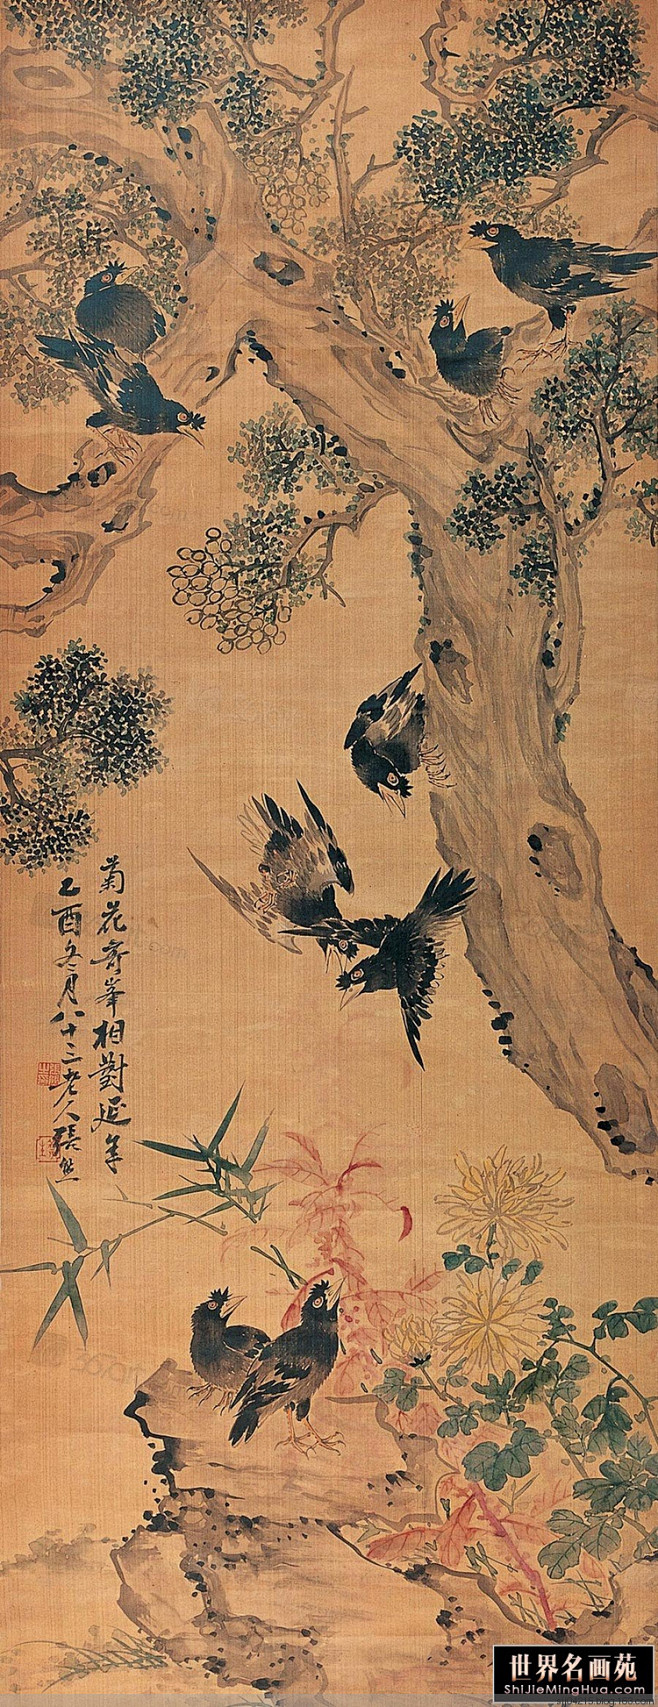 菊花奇峯相對延年
乙酉冬月八十三老人張熊
世界名画苑
ShiJieMingHua.com